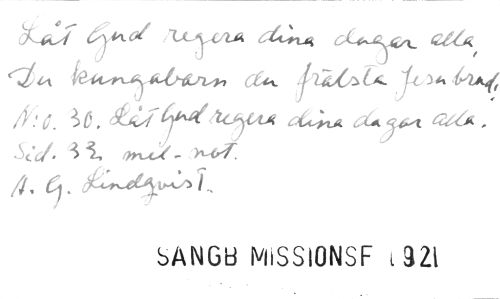 Låt Gud regera dina dagar alla,
Du kungabarn du frälsta Jesu brud,
N:o. 30. Låt Gud regera dina dagar alla.
Sid. 33. mel-not.
A. G. Lindqvist.
SANGB MISSIONSF 1921